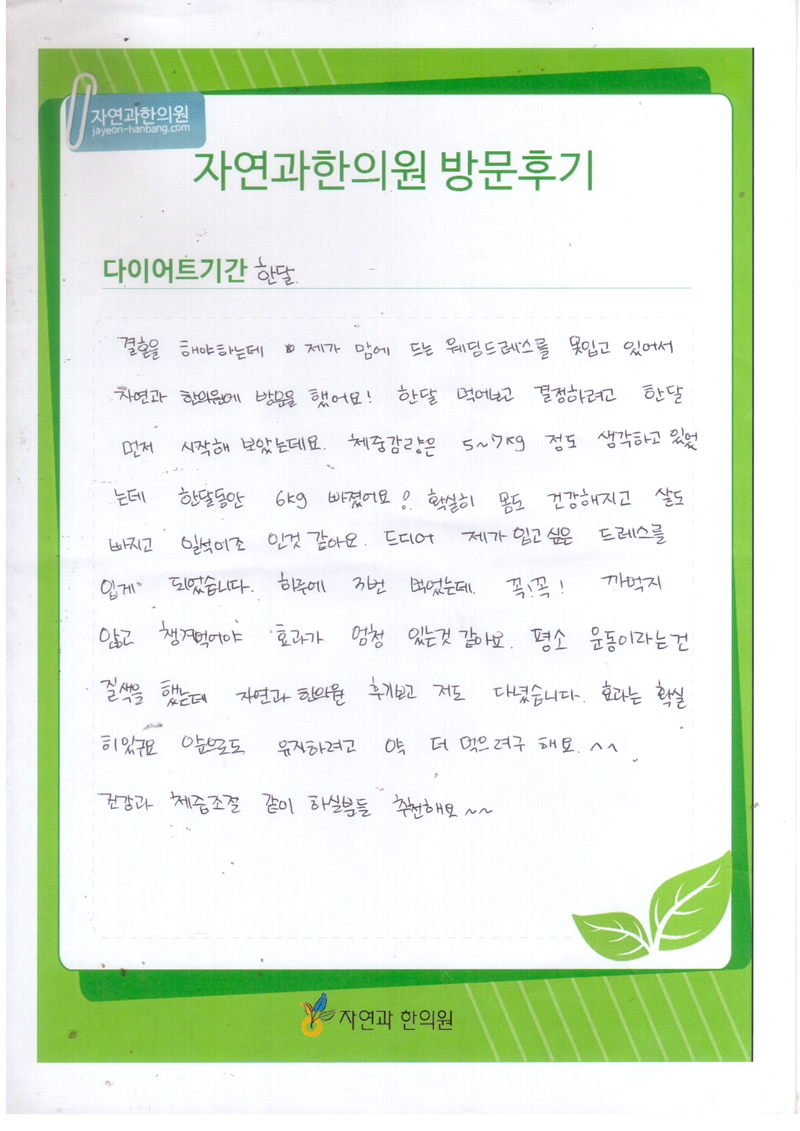 자연과한의원
jayeon-hanbang.com
자연과한의원 방문후기
다이어트기간 한달.
결혼을 해야하는데 제가 맘에 뜨는 웨딩드레스를 못입고 있어서
자연과 한의원에 방문을 했어요! 한달 먹어보고 결정하려고 한달
먼저 시작해 보았는데요. 체중감량은 5~7kg 정도 생각하고 있었
는데 한달동안 6kg 빠졌어요! 확실히 몸도 건강해지고 살도
빠지고 일석이조 인것 같아요. 드디어 제가 입고 싶은 드레스를
입게 되었습니다. 하루에 3번 먹었는데. 꼭!꼭! 까먹지
않고 챙겨먹어야 효과가 엄청 있는것 같아요. 평소 운동이라는건
질색을 했는데 자연과 한의원 후기보고 저도 다녔습니다. 효과는 확실
히있구요 앞으로도 유지하려고 약 더 먹으려구 해요. ^^
건강과 체중조절 같이 하실분들 추천해요~~
자연과 한의원